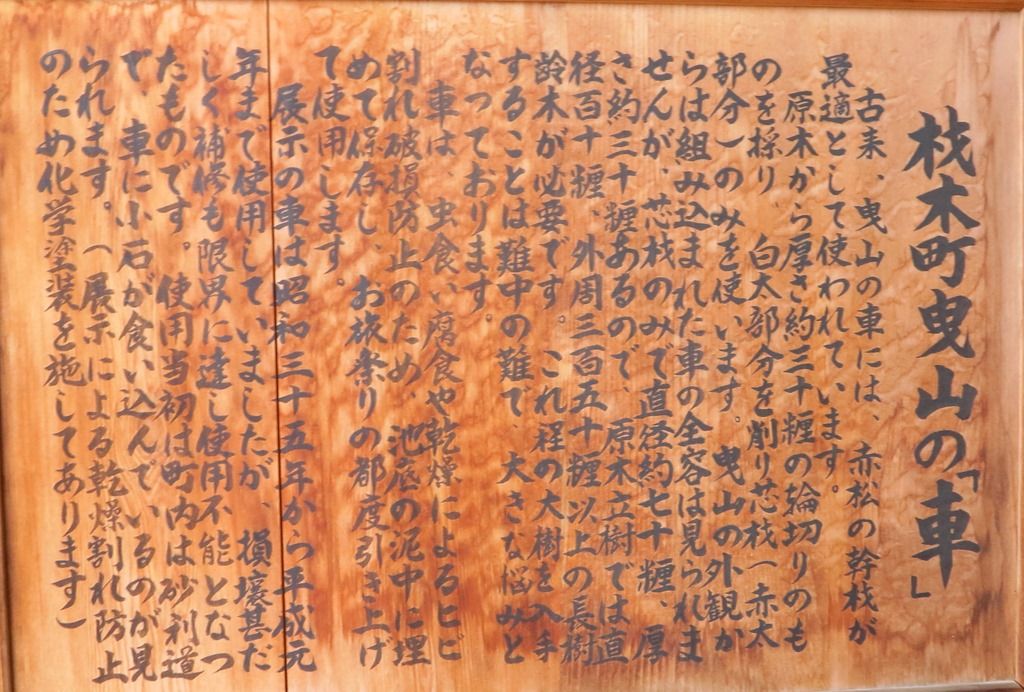 材木町曳山の「車」
古来、曳山の車には、赤松の幹材が
最適として使われています。
原木から厚さ約三十糎の輪切りのも
のを採り、白太部分を削り芯材(赤太
部分)のみを使います。曳山の外観か
らは組み込まれた車の全容は見られま
せんが、芯材のみで直径約七十糎、厚
さ約三十糎あるので、原木立樹では直
径百十糎、外周三百五十糎以上の長樹
齢木が必要です。これ程の大樹を入手
することは難中の難で、大きな悩みと
なっております。
車は、虫食い腐食や乾燥によるヒビ
割れ破損防止のため、池底の泥中に埋
めて保存し、お旅祭りの都度引き上げ
て使用します。
展示の車は昭和三十五年から平成元
年まで使用していましたが、損壊甚だ
しく補修も限界に達し使用不能となっ
たものです。使用当初は町内は砂利道
で、車に小石が食い込んでいるのが見
られます。(展示による乾燥割れ防止
のため化学塗装を施してあります)